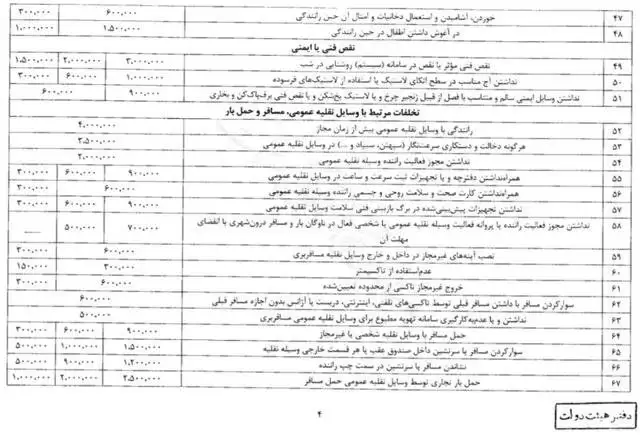 ۴۷ خوردن، آشامیدن و استعمال دخانیات و امثال آن حین رانندگی ۶۰۰,۰۰۰ ۳۰۰,۰۰۰
۴۸ در آغوش داشتن اطفال در حین رانندگی ۱,۵۰۰,۰۰۰ ۱,۰۰۰,۰۰۰
نقص فنی یا ایمنی
۴۹ نقص فنی مؤثر یا نقص در سامانه (سیستم) روشنایی در شب ۳,۰۰۰,۰۰۰ ۲,۰۰۰,۰۰۰ ۱,۵۰۰,۰۰۰
۵۰ نداشتن آج مناسب در سطح اتکای لاستیک یا استفاده از لاستیک‌های فرسوده ۱,۰۰۰,۰۰۰ ۶۰۰,۰۰۰ ۳۰۰,۰۰۰
۵۱ نداشتن وسایل ایمنی سالم و متناسب با فصل از قبیل زنجیر چرخ و یا لاستیک یخ‌شکن و یا نقص فنی برف‌پاک‌کن و بخاری ۹۰۰,۰۰۰ ۶۰۰,۰۰۰
تخلفات مرتبط با وسایل نقلیه عمومی، مسافر و حمل بار
۵۲ رانندگی با وسایل نقلیه عمومی بیش از زمان مجاز ۴,۰۰۰,۰۰۰
۵۳ هرگونه دخالت و دستکاری سرعت‌نگار (سپهتن، سیپاد و ...) در وسایل نقلیه عمومی ۲,۵۰۰,۰۰۰
۵۴ نداشتن مجوز فعالیت راننده وسیله نقلیه عمومی ۲,۰۰۰,۰۰۰
۵۵ همراه‌نداشتن دفترچه و یا تجهیزات ثبت سرعت و ساعت در وسایل نقلیه عمومی ۹۰۰,۰۰۰ ۶۰۰,۰۰۰ ۳۰۰,۰۰۰
۵۶ همراه‌نداشتن کارت صحت و سلامت روحی و جسمی راننده وسیله نقلیه عمومی ۶۰۰,۰۰۰ ۳۰۰,۰۰۰
۵۷ نداشتن تجهیزات پیش‌بینی‌شده در برگ بازبینی فنی سلامت وسایل نقلیه عمومی ۹۰۰,۰۰۰ ۶۰۰,۰۰۰ ۳۰۰,۰۰۰
۵۸ نداشتن مجوز فعالیت راننده یا پروانه فعالیت وسیله نقلیه عمومی یا شخصی فعال در ناوگان بار و مسافر درون‌شهری یا انقضای ۷۰۰,۰۰۰ ۵۰۰,۰۰۰
مهلت آن
۵۹ نصب آینه‌های غیرمجاز در داخل و خارج وسایل نقلیه مسافربری ۶۰۰,۰۰۰ ۳۰۰,۰۰۰
۶۰ عدم‌استفاده از تاکسیمتر ۳۰۰,۰۰۰ ۱۵۰,۰۰۰
۶۱ خروج غیرمجاز تاکسی از محدوده تعیین‌شده ۶۰۰,۰۰۰ ۳۰۰,۰۰۰
۶۲ سوارکردن مسافر با داشتن مسافر قبلی توسط تاکسی‌های تلفنی، اینترنتی، دربست یا آژانس بدون اجازه مسافر قبلی ۶۰۰,۰۰۰
۶۳ نداشتن و یا عدم‌به‌کارگیری سامانه تهویه مطبوع برای وسایل نقلیه عمومی مسافربری ۵۰۰,۰۰۰
۶۴ حمل مسافر با وسایل نقلیه شخصی یا غیرمجاز ۹۰۰,۰۰۰ ۶۰۰,۰۰۰ ۳۰۰,۰۰۰
۶۵ سوارکردن مسافر یا سرنشین داخل صندوق عقب یا هر قسمت خارجی وسیله نقلیه ۱,۵۰۰,۰۰۰ ۱,۰۰۰,۰۰۰ ۵۰۰,۰۰۰
۶۶ نشاندن مسافر یا سرنشین در سمت چپ راننده ۱,۲۰۰,۰۰۰ ۹۰۰,۰۰۰ ۵۰۰,۰۰۰
۶۷ حمل بار تجاری توسط وسایل نقلیه عمومی حمل مسافر ۲,۵۰۰,۰۰۰ ۲,۰۰۰,۰۰۰ ۱,۰۰۰,۰۰۰
۴
دفتر هیئت دولت